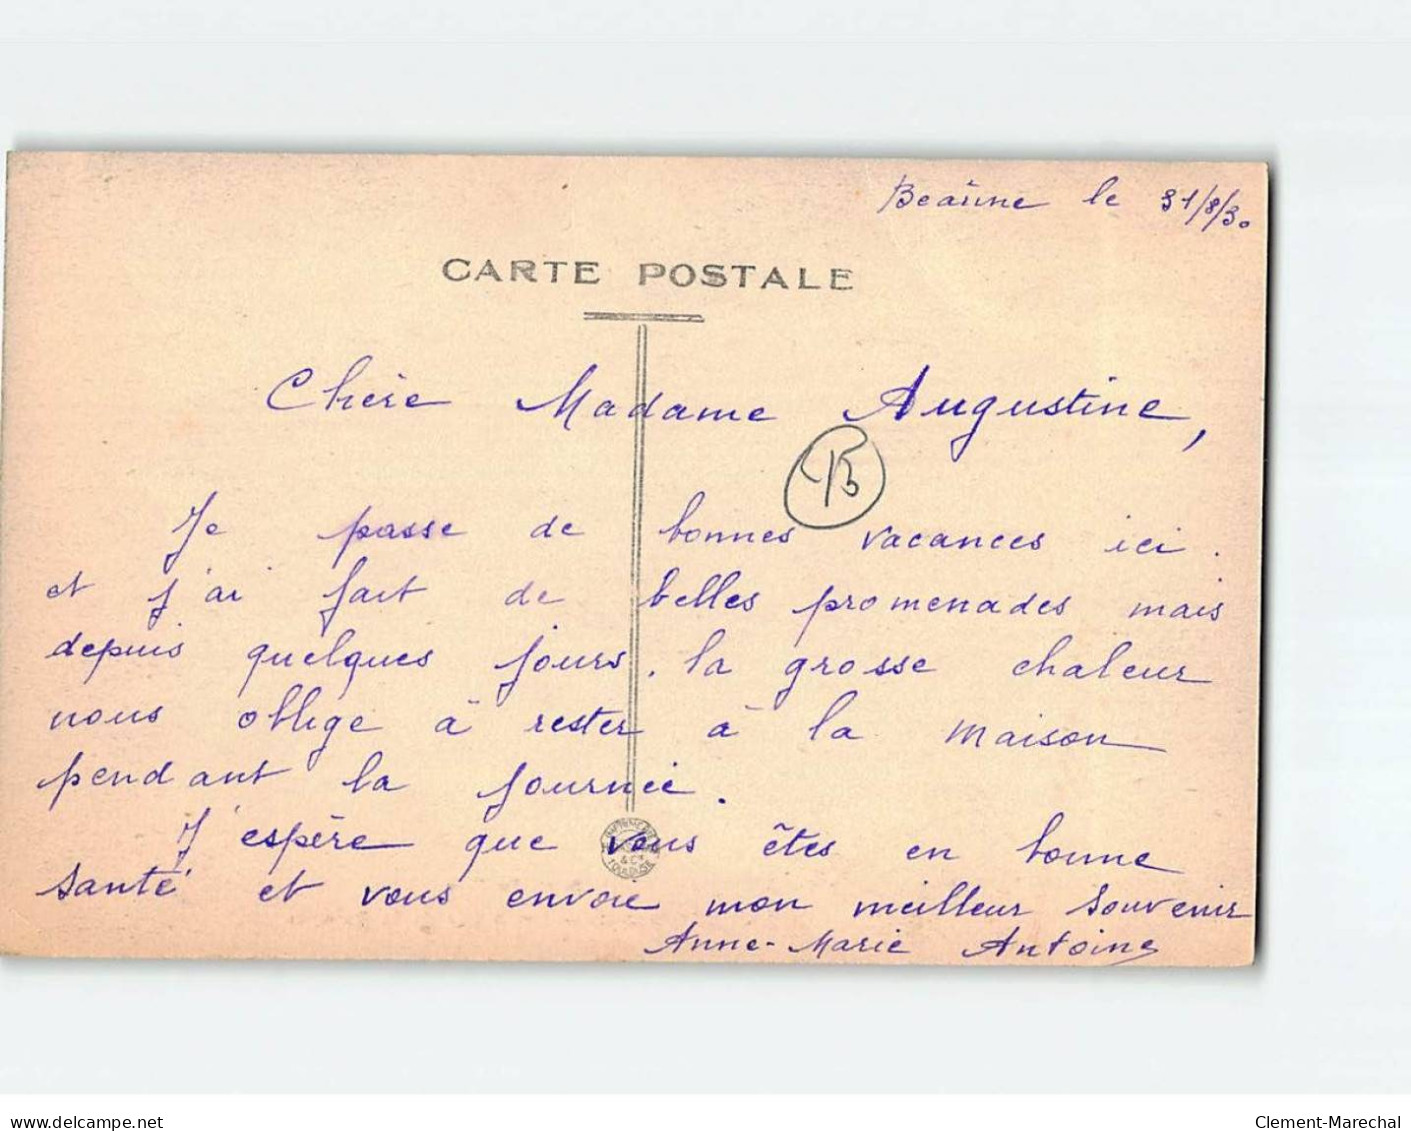 Beaune le 31/8/30
CARTE POSTALE
Chère Madame Augustine,
Je passe de bonnes vacances ici.
et j'ai fait de belles promenades mais
depuis quelques jours, la grosse chaleur
nous oblige à rester à la maison
pendant la journée.
J'espère que vous êtes en bonne
santé et vous envoie mon meilleur souvenir
Anne-Marie Antoine
www.delcampe.net
Clement-Marechal